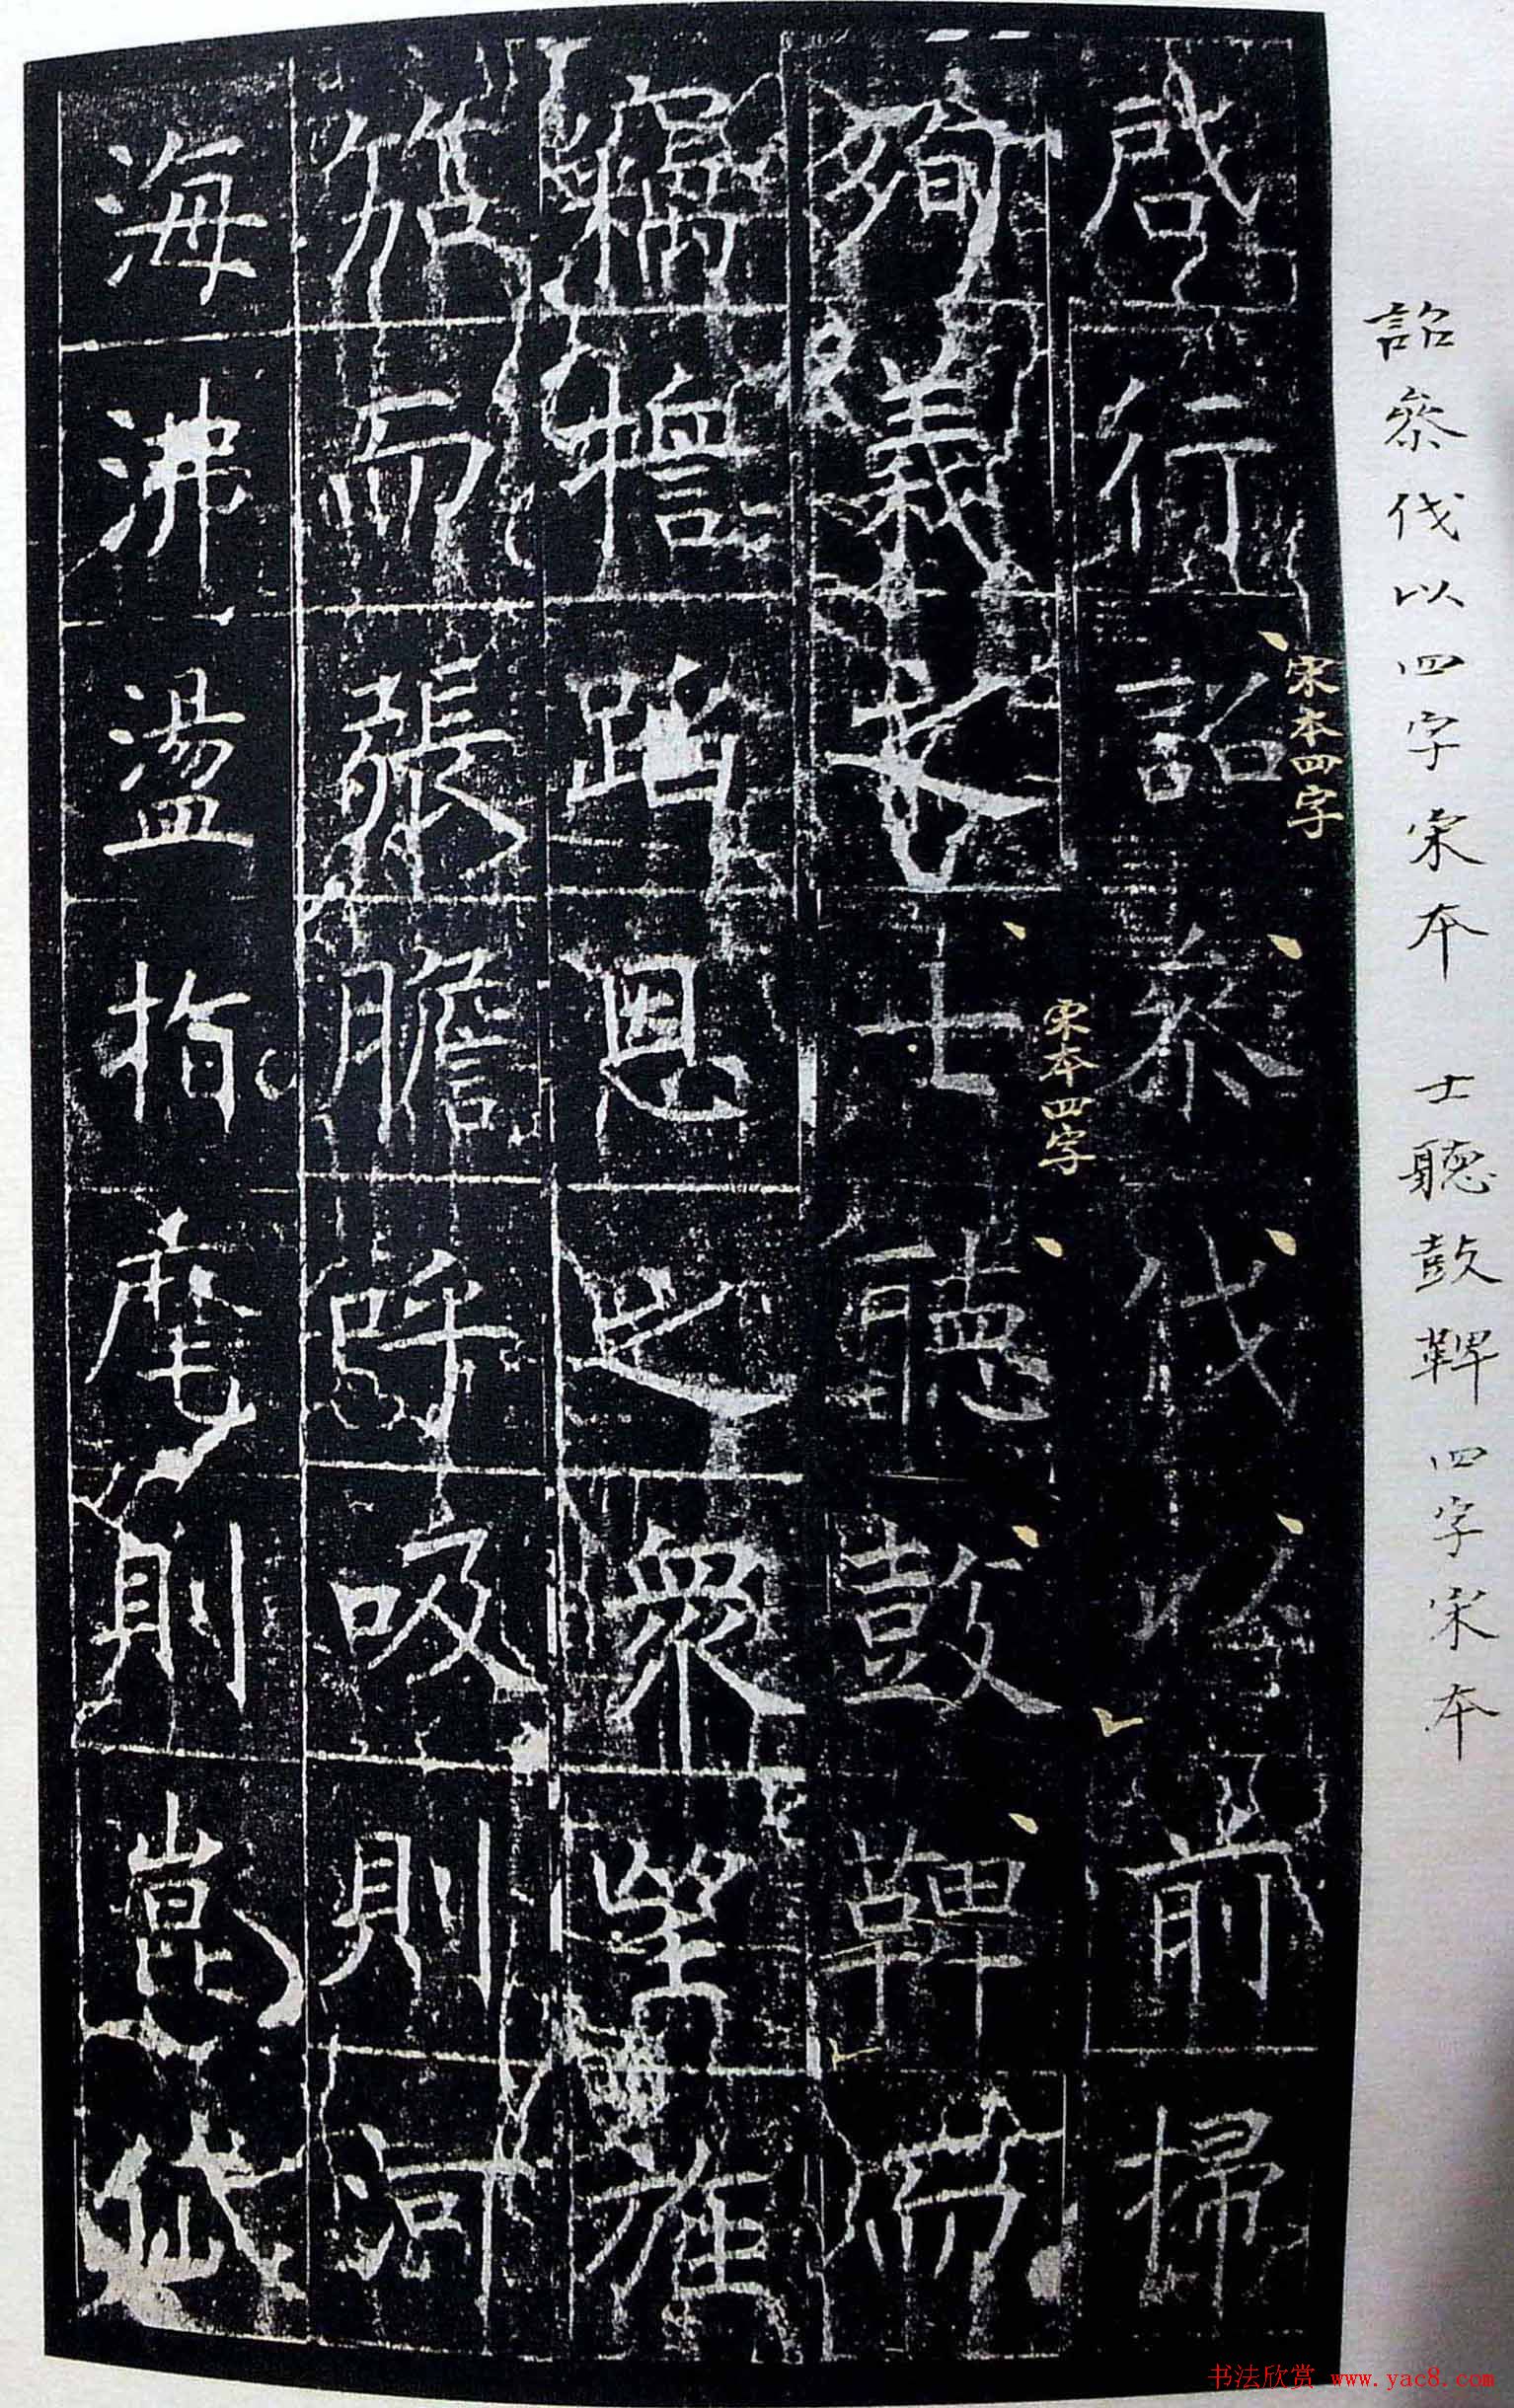 詔叅伐以四字宋本　士聽鼓鞞四字宋本
啓行詔叅伐以前掃
宋本四字
殉義士聽鼓鞞而
宋本四字
蹈恩之衆望旌
而張膽呼吸則河
海沸盪指麾則崑
书法欣赏 www.yac8.com